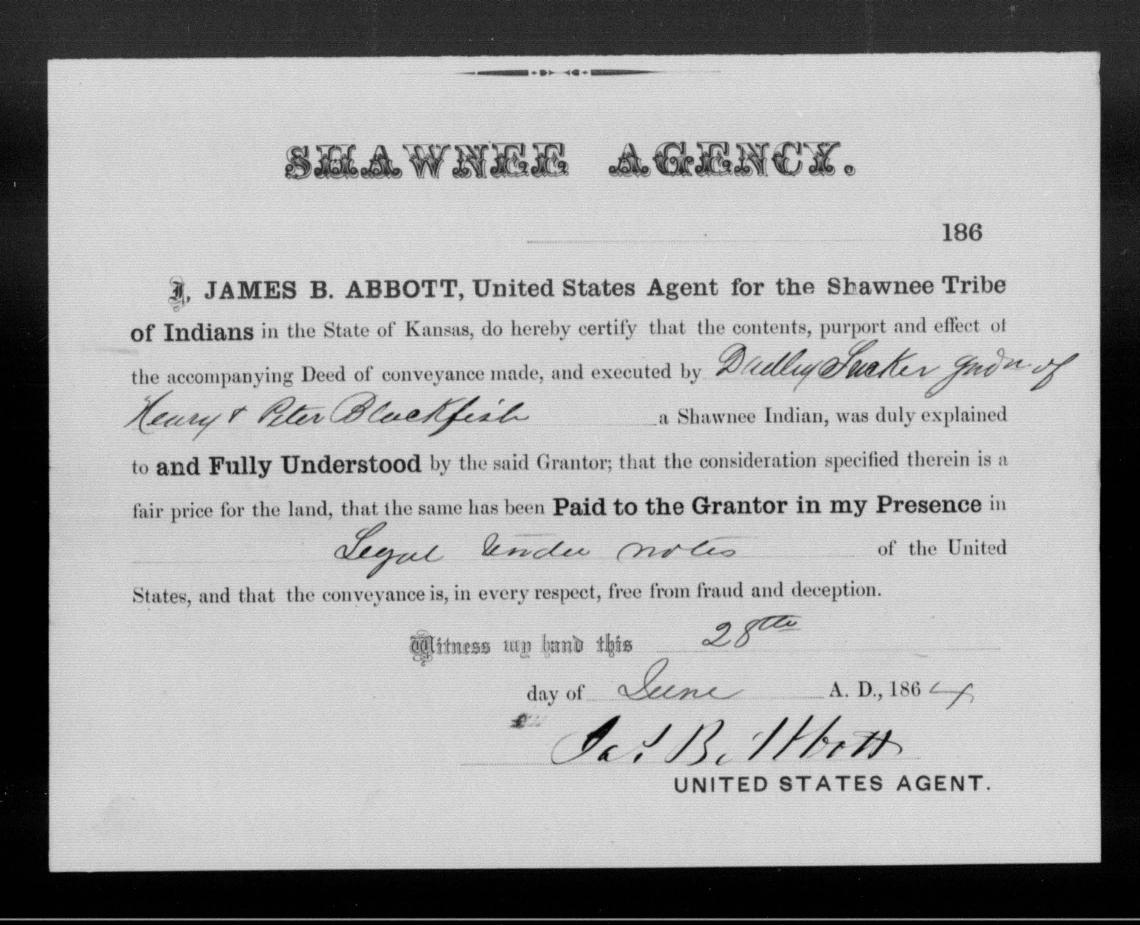 SHAWNEE AGENCY.
186
I, JAMES B. ABBOTT, United States Agent for the Shawnee Tribe
of Indians in the State of Kansas, do hereby certify that the contents, purport and effect of
the accompanying Deed of conveyance made, and executed by Dudley Tucker gudn of
Henry & Peter Blackfish a Shawnee Indian, was duly explained
to and Fully Understood by the said Grantor; that the consideration specified therein is a
fair price for the land, that the same has been Paid to the Grantor in my Presence in
Legal tender notes of the United
States, and that the conveyance is, in every respect, free from fraud and deception.
Witness my hand this 28th
day of June A. D., 1864
Jas B. Abbott
UNITED STATES AGENT.